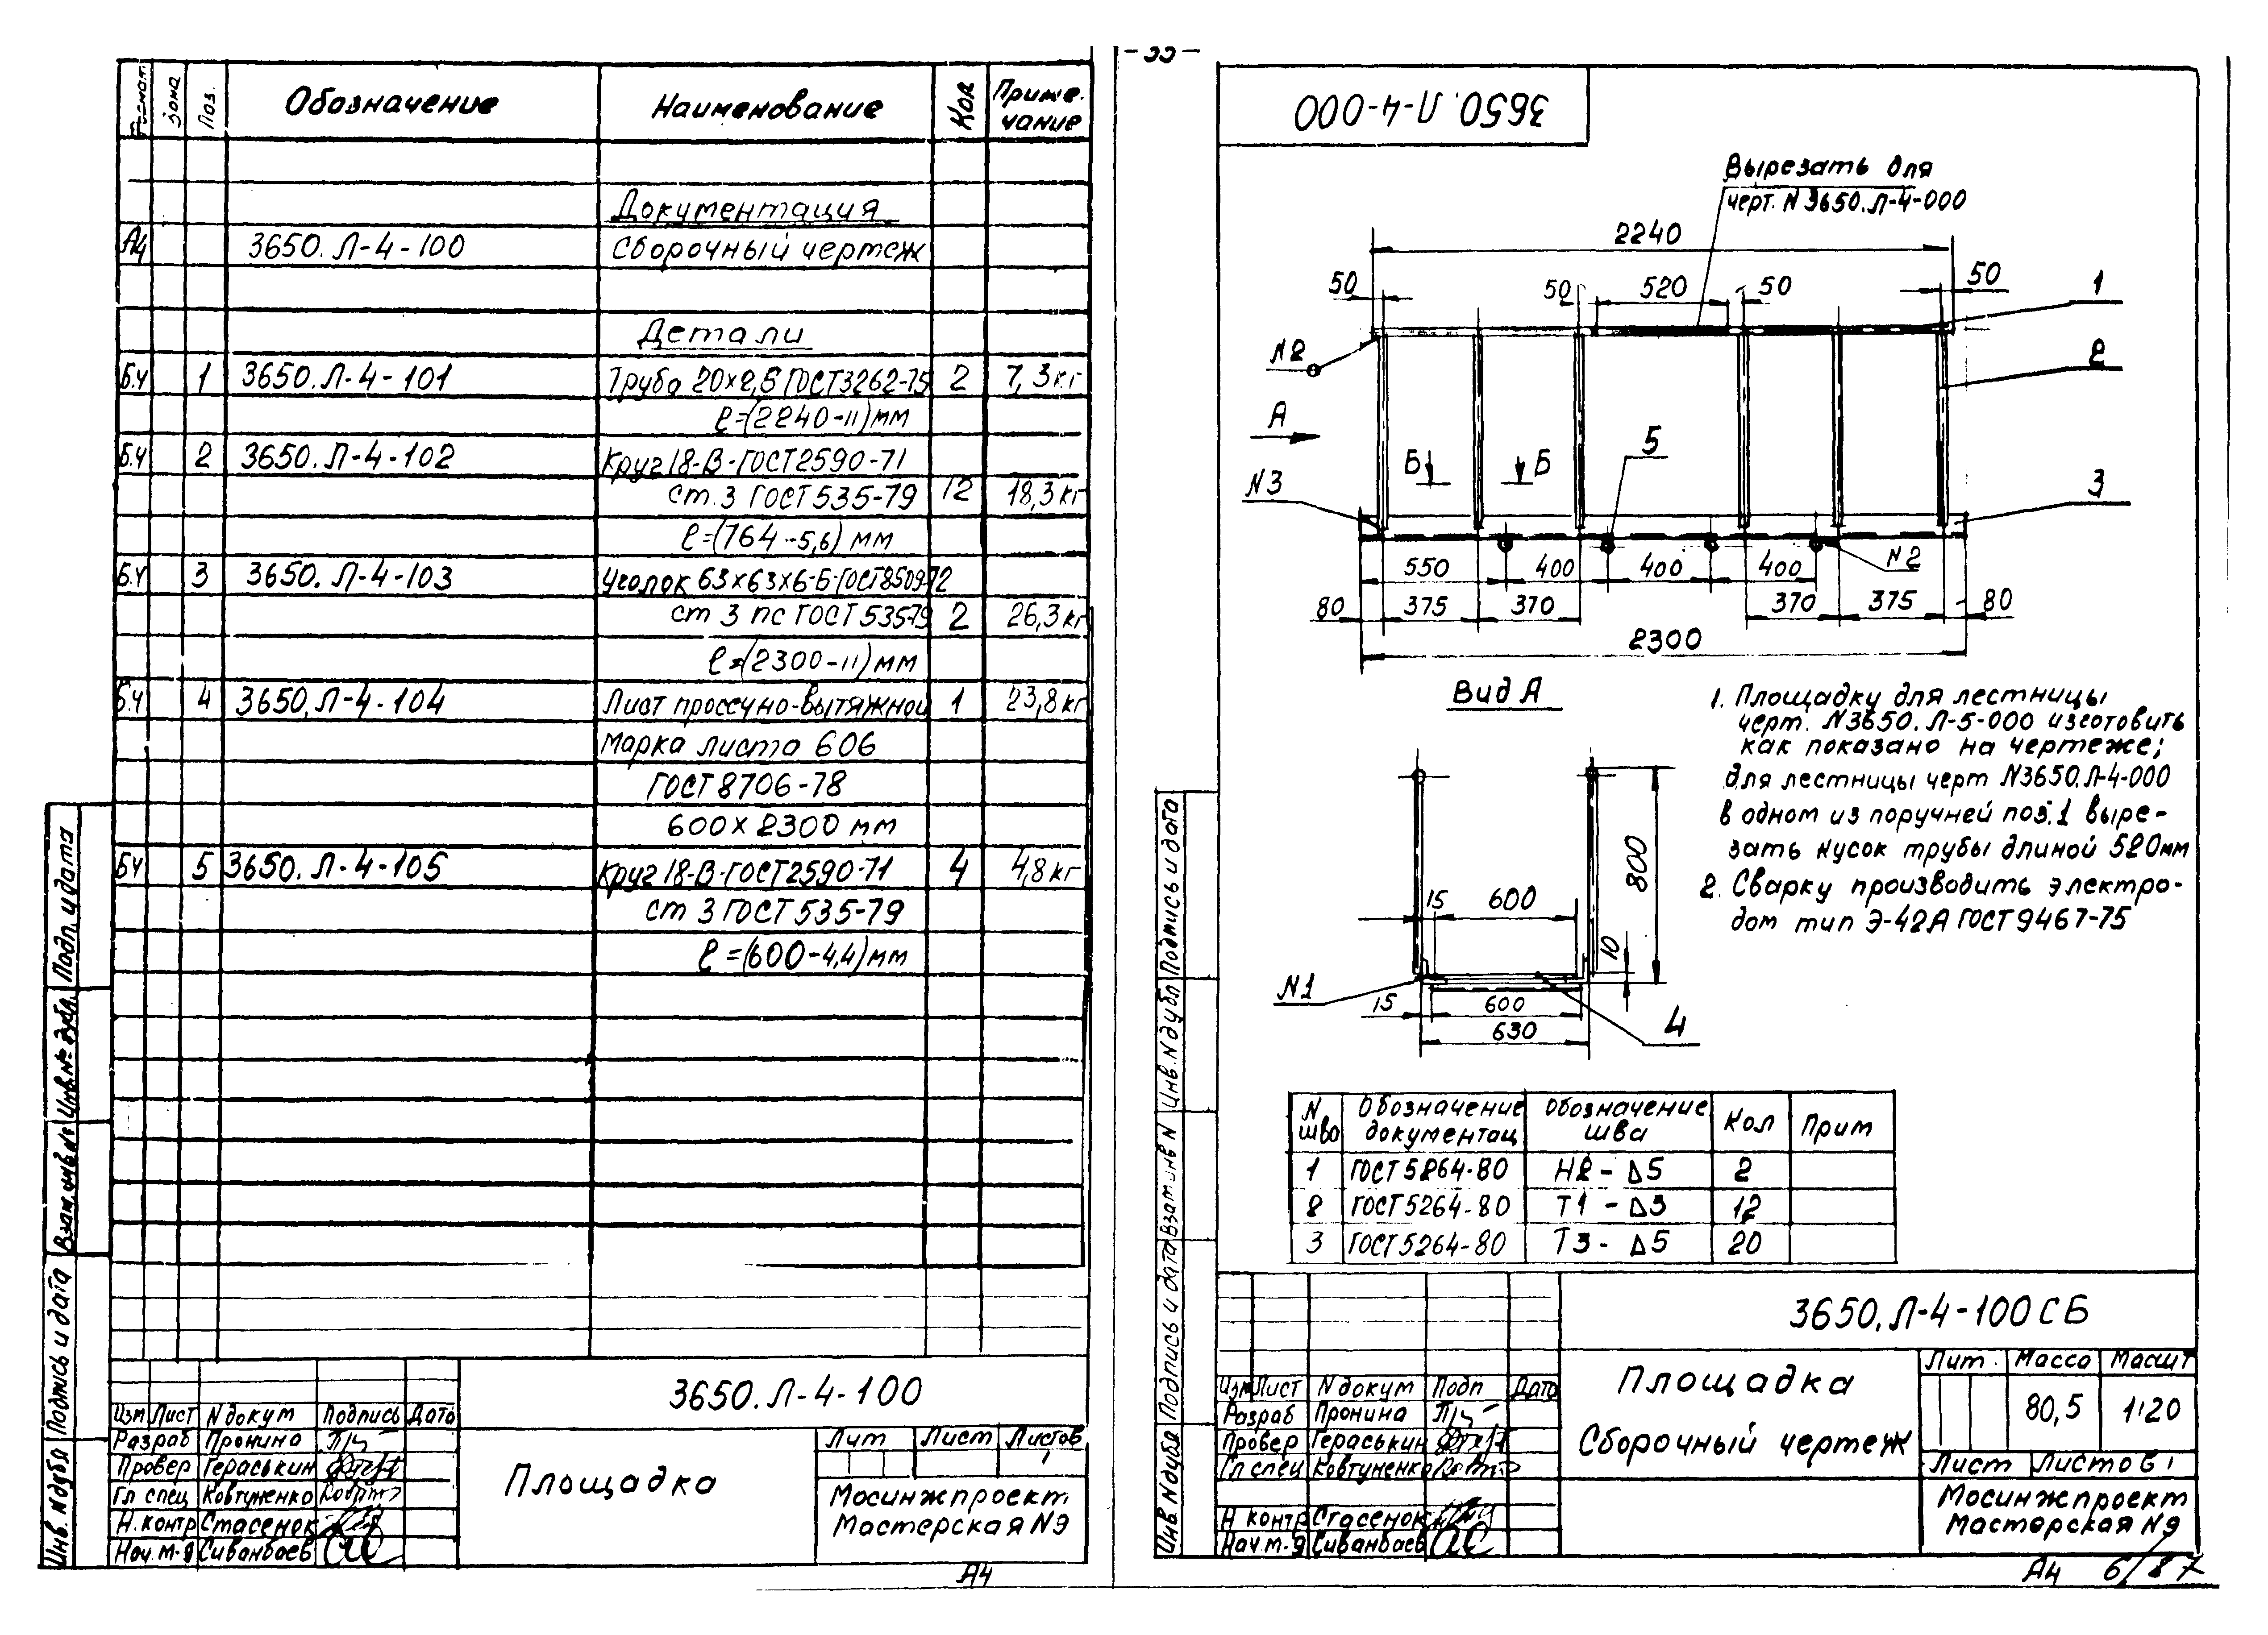 -33-
Формат
Зона
Поз.
Обозначение
Наименование
Кол
Приме-
чание
Документация
А4 3650.Л-4-100 Сборочный чертеж
Детали
Б.Ч 1 3650.Л-4-101 Труба 20х2,8 ГОСТ3262-75 2 7,3кг
ℓ=(2240-11)мм
Б.Ч 2 3650.Л-4-102 Круг18-В-ГОСТ2590-71
ст.3 ГОСТ535-79 12 18,3кг
ℓ=(764-5,6) мм
Б.Ч 3 3650.Л-4-103 Уголок 63х63х6-Б-ГОСТ8509-72
ст 3 пс ГОСТ535-79 2 26,3кг
ℓ=(2300-11)мм
Б.Ч 4 3650.Л-4-104 Лист просечно-вытяжной 1 23,8кг
марка листа 606
ГОСТ8706-78
600х2300мм
БЧ 5 3650.Л-4-105 Круг18-В-ГОСТ2590-71 4 4,8кг
ст 3 ГОСТ535-79
ℓ=(600-4,4)мм
Подп. и дата
Инв.№ дубл.
Взам.инв.№
Подпись и дата
Инв. N дубл
3650.Л-4-100
Изм Лист N докум Подпись Дата
Разраб Пронина
Провер Гераськин
Гл спец Ковтуненко
Н.контр Стасенок
Нач.м-9 Сиванбаев
Площадка
Лит Лист Листов
1
Мосинжпроект
Мастерская N9
А4
3650.Л-4-000
Вырезать для
черт. N 3650.Л-4-000
2240
50 50 520 50 50
1
N2
2
А
Б Б
5
N3
3
550 400 400 400
N2
80 375 370 370 375 80
2300
Вид А
15 600
800
10
N1
15 600
4
630
1. Площадку для лестницы
черт. N3650.Л-5-000 изготовить
как показано на чертеже;
для лестницы черт N3650.Л-4-000
в одном из поручней поз.1 выре-
зать кусок трубы длиной 520мм
2. Сварку производить электро-
дом тип Э-42А ГОСТ9467-75
N
шва
Обозначение
документац
Обозначение
шва
Кол
Прим
1 ГОСТ5264-80 Н2-Δ5 2
2 ГОСТ5264-80 Т1-Δ3 12
3 ГОСТ5264-80 Т3-Δ5 20
Подпись и дата
Инв.N дубл
Взам.инв N
Подпись и дата
Инв. N дубл
3650.Л-4-100СБ
Изм Лист N докум Подп Дата
Разраб Пронина
Провер Гераськин
Гл спец Ковтуненко
Н контр Стасенок
Нач.м-9 Сиванбаев
Площадка
Сборочный чертеж
Лит. Масса Масшт
80,5 1:20
Лист Листов 1
Мосинжпроект
Мастерская N9
А4 6/87